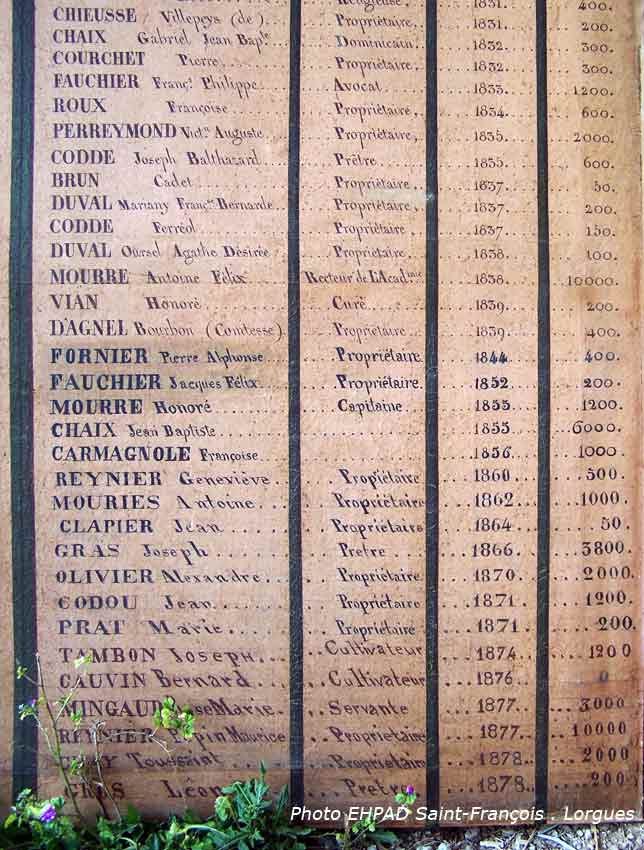 Religieuse 1831. 400.
CHIEUSSE Villepeys (de) Propriétaire. 1831. 200.
CHAIX Gabriel Jean Bap.te Dominicain. 1832. 300.
COURCHET Pierre Propriétaire. 1832. 300.
FAUCHIER Franç.s Philippe Avocat 1833. 1200.
ROUX Françoise Propriétaire. 1834. 600.
PERREYMOND Vict.r Auguste Propriétaire. 1835. 2000.
CODDE Joseph Balthazard Prêtre 1835. 600.
BRUN Cadet Propriétaire 1837. 50.
DUVAL Mariany Franç.se Bernarde Propriétaire. 1837. 200.
CODDE Ferréol Propriétaire 1837. 150.
DUVAL Oursel Agathe Désirée Propriétaire 1838. 100.
MOURRE Antoine Félix Recteur de L'Acad.mie 1838. 10000.
VIAN Honoré Curé 1839. 200.
D'AGNEL Bourbon (Comtesse) Propriétaire 1839. 400.
FORNIER Pierre Alphonse Propriétaire 1844 400.
FAUCHIER Jacques Félix Propriétaire 1852 200.
MOURRE Honoré Capitaine 1855 1200.
CHAIX Jean Baptiste 1855 6000.
CARMAGNOLE Françoise 1856 1000.
REYNIER Geneviève Propriétaire 1860 500.
MOURIES Antoine Propriétaire 1862 1000.
CLAPIER Jean Propriétaire 1864 50.
GRAS Joseph Pretre 1866. 3800.
OLIVIER Alexandre Propriétaire 1870. 2000.
CODOU Jean Propriétaire 1871. 1200.
PRAT Marie Propriétaire 1871 200.
TAMBON Joseph Cultivateur 1874 1200
CAUVIN Bernard Cultivateur 1876 0
MINGAUD Marie Servante 1877 3000
REYNIER Pepin Maurice Propriétaire 1877 10000
Toussaint Propriétaire 1878 2000
GRAS Léon Pretre 1878 200
Photo EHPAD Saint-François . Lorgues